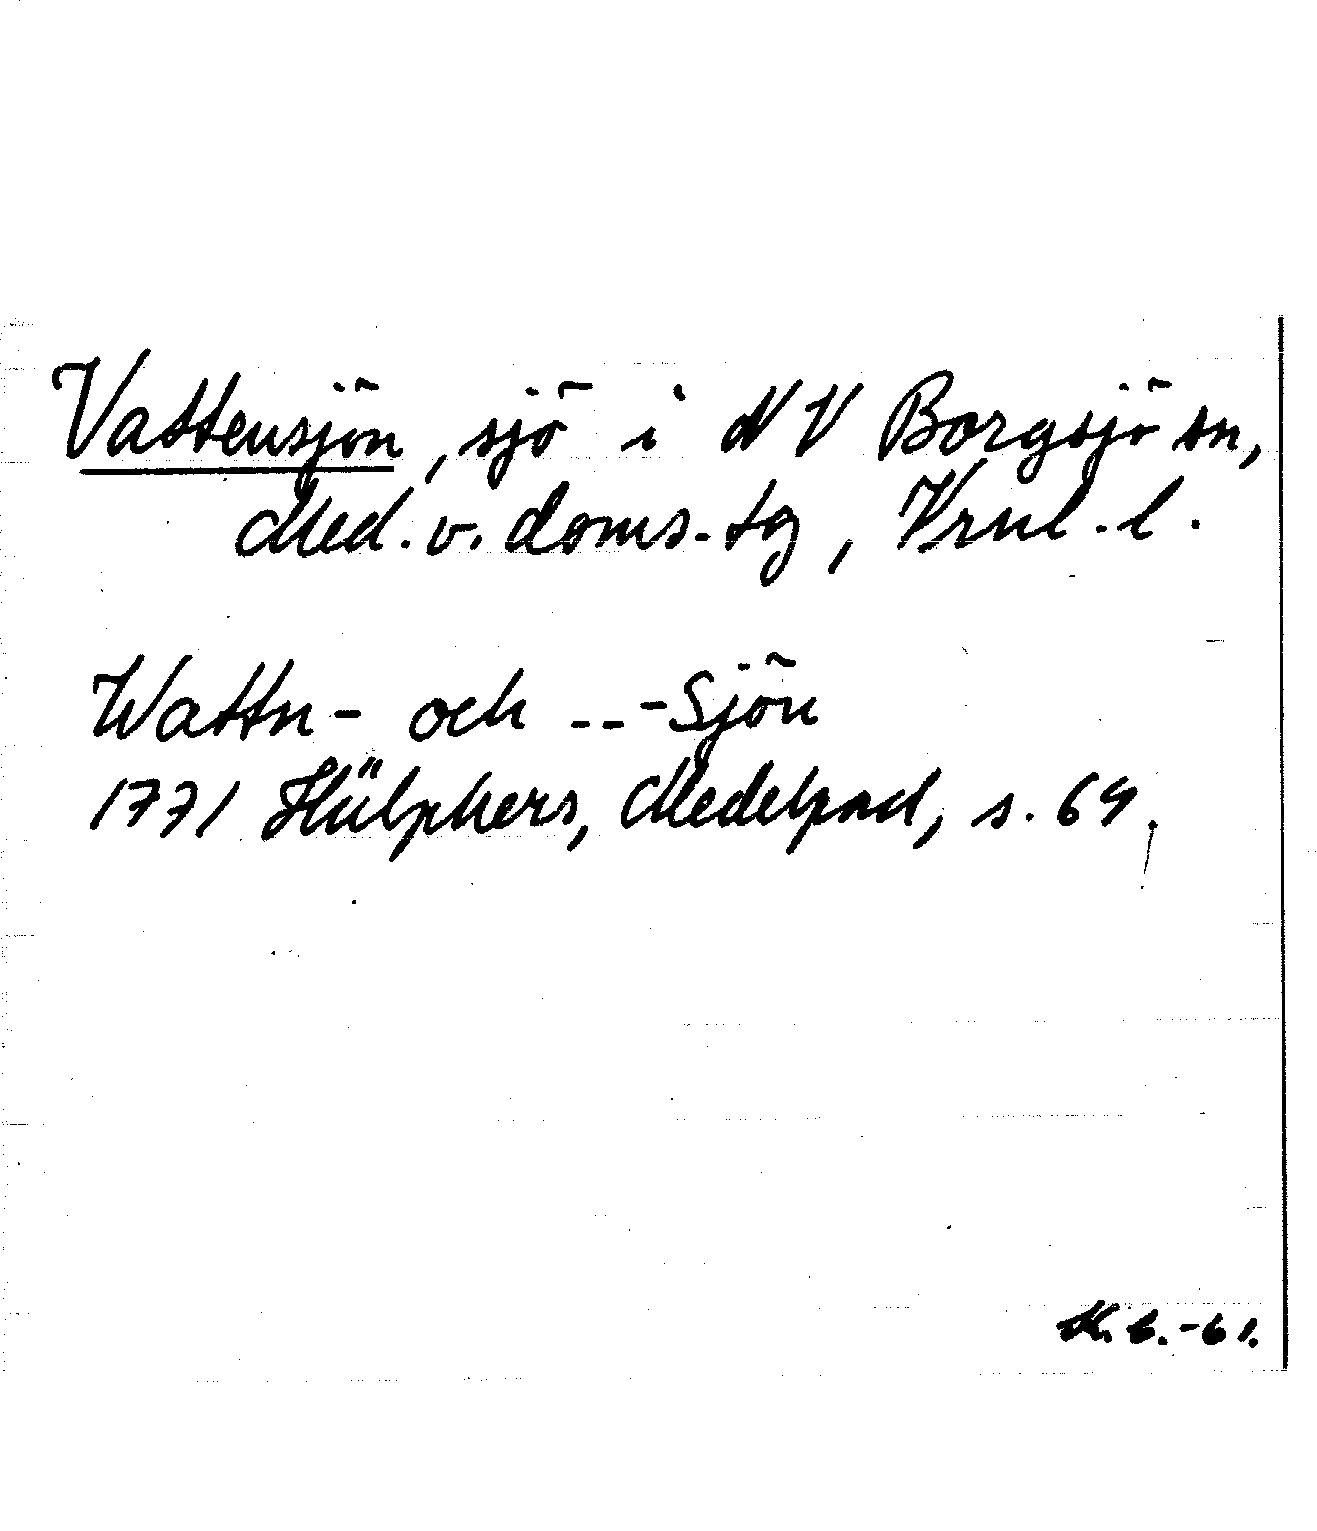 Vattensjön, sjö i NV Borgsjö sn,
Med. v. doms.-tg, Vrnl.-l.
Wattn- och - - -Sjön
1771 Hülphers, Medelpad, s. 69.